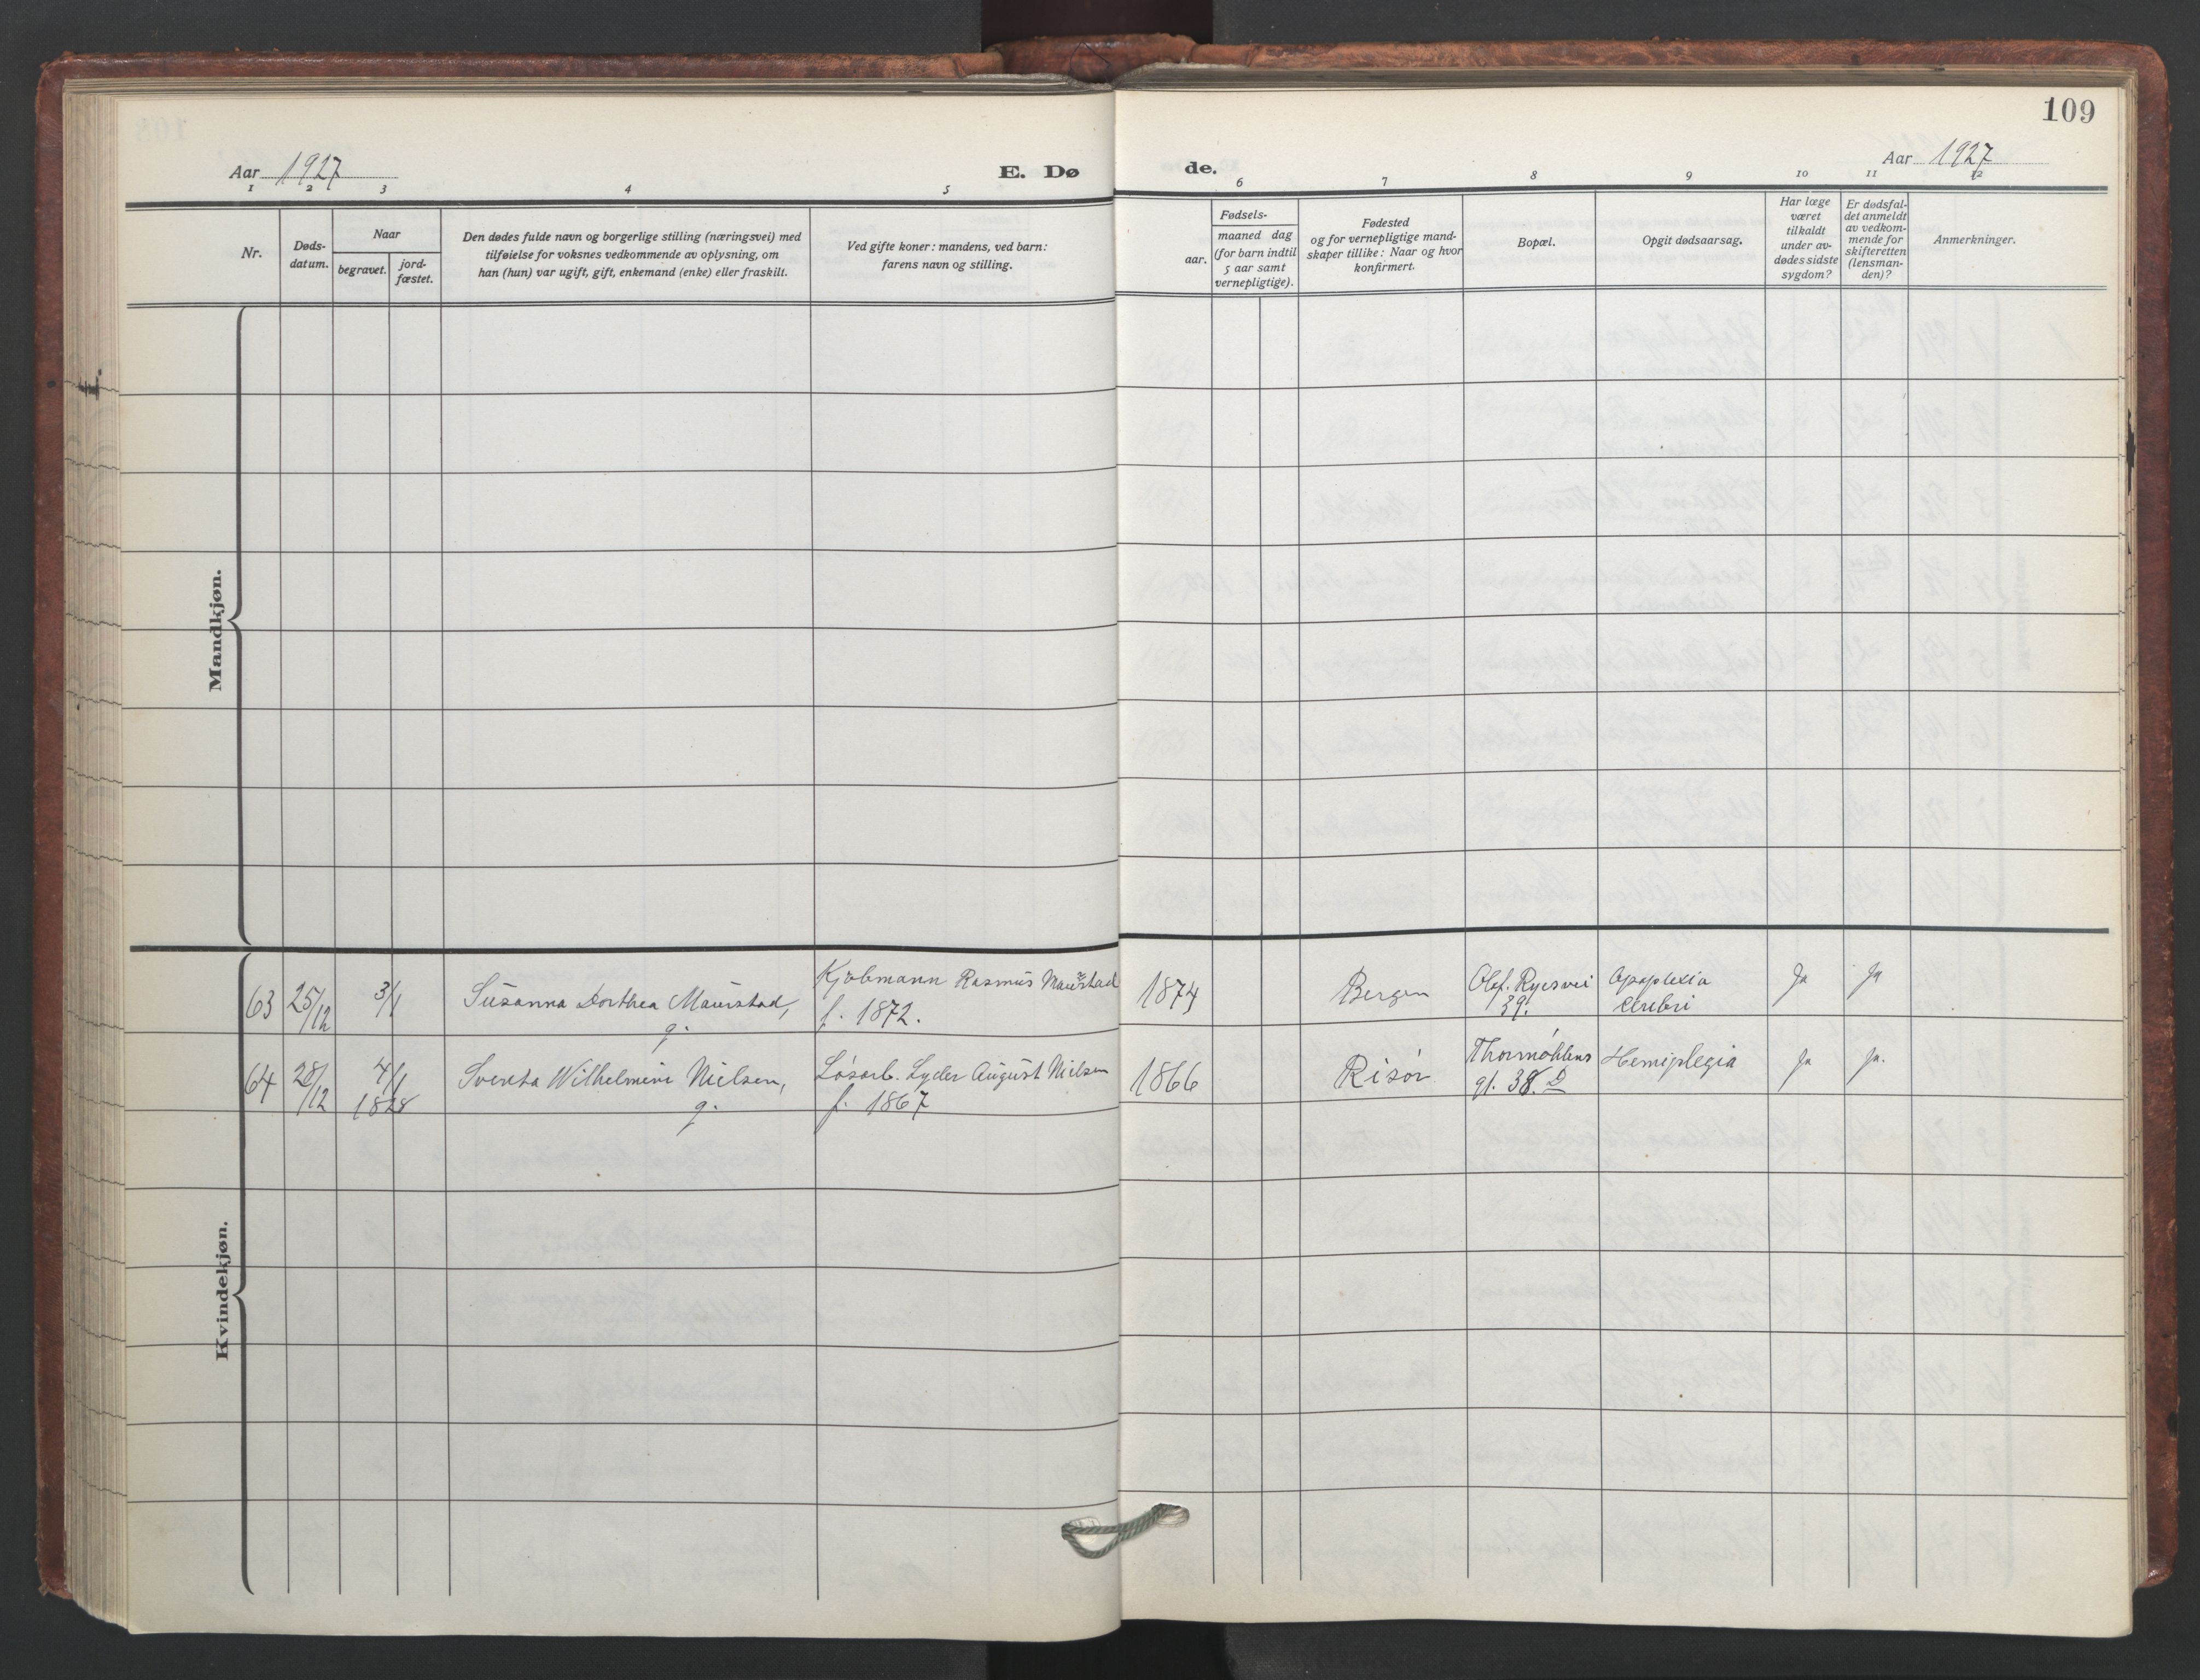 109
Aar 1927
E. Dø
de.
Aar 1927
1 2 3 4 5 6 7 8 9 10 11 12
Nr.
Døds-
datum.
Naar
begravet.
jord-
fæstet.
Den dødes fulde navn og borgerlige stilling (næringsvei) med
tilføielse for voksnes vedkommende av oplysning, om
han (hun) var ugift, gift, enkemand (enke) eller fraskilt.
Ved gifte koner: mandens, ved barn:
farens navn og stilling.
Fødsels-
aar.
maaned dag
(for barn indtil
5 aar samt
vernepligtige).
Fødested
og for vernepligtige mand-
skaper tillike: Naar og hvor
konfirmert.
Bopæl.
Opgit dødsaarsag.
Har læge
været
tilkaldt
under av-
dødes sidste
sygdom?
Er dødsfal-
det anmeldt
av vedkom-
mende for
skifteretten
(lensman-
den)?
Anmerkninger.
Mandkjøn.
Kvindekjøn.
63 25/12 3/1 Susanna Dorthea Maurstad, Kjøbmann Rasmus Maurstad 1874 Bergen Olf. Ryesvei Apoplexia Ja Ja
g. f. 1872. 39. cerebri
64 28/12 4/1 Sverta Wilhelmine Nielsen, Løsarb. Lyder August Nielsen 1866 Risør Thormøhlens Hemiplegia Ja Ja.
1828 g. f. 1867 gt. 38. D